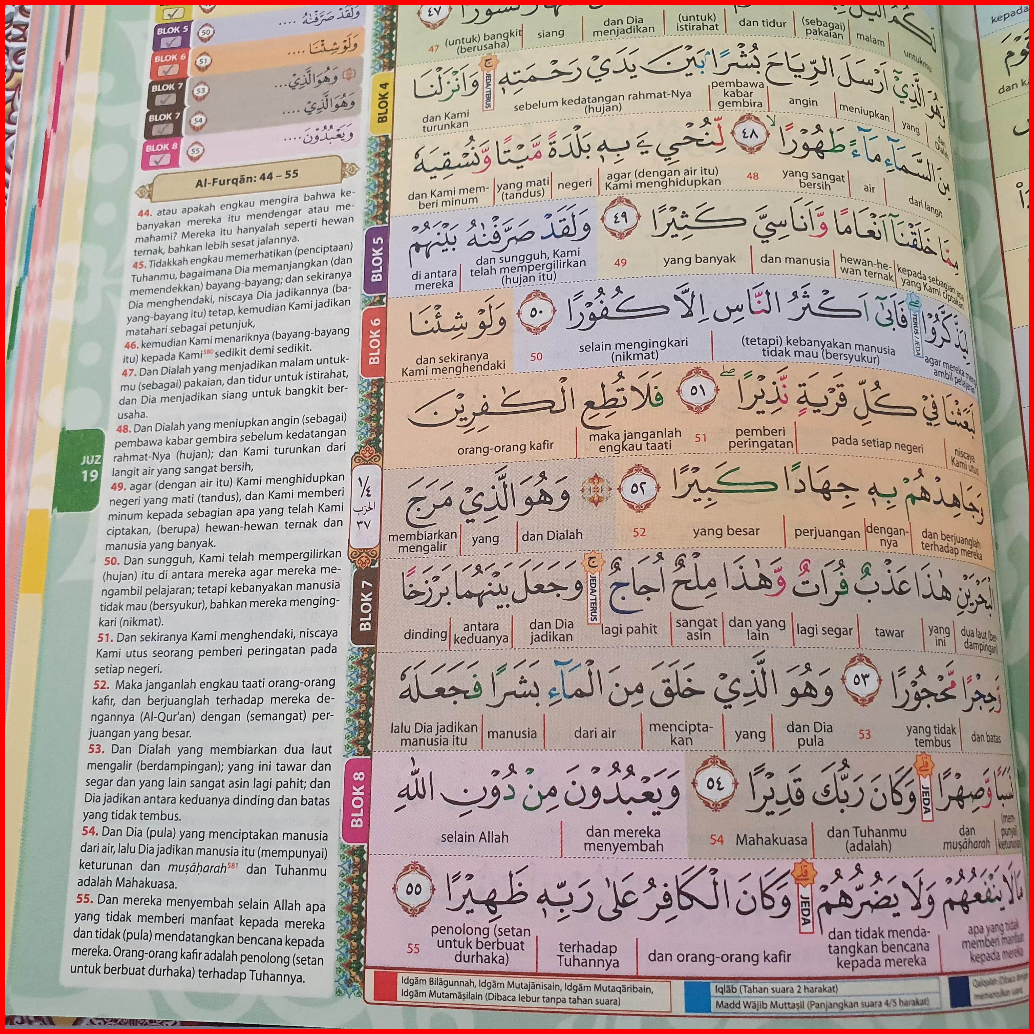 BLOK 5
٥٠
وَلَقَدْ صَرَّفْنٰهُ ....
BLOK 6
٥١
وَلَوْ شِئْنَا ....
BLOK 7
٥٣
وَهُوَ الَّذِيْ....
BLOK 7
٥٤
وَهُوَ الَّذِيْ....
BLOK 8
٥٥
وَيَعْبُدُوْنَ....
Al-Furqān: 44 – 55
44. atau apakah engkau mengira bahwa ke-
banyakan mereka itu mendengar atau me-
mahami? Mereka itu hanyalah seperti hewan
ternak, bahkan lebih sesat jalannya.
45. Tidakkah engkau memerhatikan (penciptaan)
Tuhanmu, bagaimana Dia memanjangkan (dan
memendekkan) bayang-bayang; dan sekiranya
Dia menghendaki, niscaya Dia jadikannya (ba-
yang-bayang itu) tetap, kemudian Kami jadikan
matahari sebagai petunjuk,
46. kemudian Kami menariknya (bayang-bayang
itu) kepada Kami⁵⁸⁰ sedikit demi sedikit.
47. Dan Dialah yang menjadikan malam untuk-
mu (sebagai) pakaian, dan tidur untuk istirahat,
dan Dia menjadikan siang untuk bangkit ber-
usaha.
48. Dan Dialah yang meniupkan angin (sebagai)
pembawa kabar gembira sebelum kedatangan
rahmat-Nya (hujan); dan Kami turunkan dari
langit air yang sangat bersih,
49. agar (dengan air itu) Kami menghidupkan
negeri yang mati (tandus), dan Kami memberi
minum kepada sebagian apa yang telah Kami
ciptakan, (berupa) hewan-hewan ternak dan
manusia yang banyak.
50. Dan sungguh, Kami telah mempergilirkan
(hujan) itu di antara mereka agar mereka me-
ngambil pelajaran; tetapi kebanyakan manusia
tidak mau (bersyukur), bahkan mereka menging-
kari (nikmat).
51. Dan sekiranya Kami menghendaki, niscaya
Kami utus seorang pemberi peringatan pada
setiap negeri.
52. Maka janganlah engkau taati orang-orang
kafir, dan berjuanglah terhadap mereka de-
ngannya (Al-Qur'an) dengan (semangat) per-
juangan yang besar.
53. Dan Dialah yang membiarkan dua laut
mengalir (berdampingan); yang ini tawar dan
segar dan yang lain sangat asin lagi pahit; dan
Dia jadikan antara keduanya dinding dan batas
yang tidak tembus.
54. Dan Dia (pula) yang menciptakan manusia
dari air, lalu Dia jadikan manusia itu (mempunyai)
keturunan dan muṣāharah⁵⁸¹ dan Tuhanmu
adalah Mahakuasa.
55. Dan mereka menyembah selain Allah apa
yang tidak memberi manfaat kepada mereka
dan tidak (pula) mendatangkan bencana kepada
mereka. Orang-orang kafir adalah penolong (setan
untuk berbuat durhaka) terhadap Tuhannya.
JUZ
19
١/٤
الحزب
٣٧
٤٧
47 (untuk) bangkit (berusaha) siang dan Dia menjadikan (untuk) istirahat dan tidur (sebagai) pakaian malam untukmu
BLOK 4
وَهُوَ الَّذِيْٓ اَرْسَلَ الرِّيَاحَ بُشْرًاۢ بَيْنَ يَدَيْ رَحْمَتِهٖۚ وَاَنْزَلْنَا
JEDA/TERUS
dan Kami turunkan sebelum kedatangan rahmat-Nya (hujan) pembawa kabar gembira angin meniupkan yang
مِنَ السَّمَاۤءِ مَاۤءً طَهُوْرًا ٤٨ لِّنُحْيِيَ بِهٖ بَلْدَةً مَّيْتًا وَّنُسْقِيَهٗ
dan Kami mem-beri minum yang mati (tandus) negeri agar (dengan air itu) Kami menghidupkan 48 yang sangat bersih air dari langit
BLOK 5
مِمَّا خَلَقْنَآ اَنْعَامًا وَّاَنَاسِيَّ كَثِيْرًا ٤٩ وَلَقَدْ صَرَّفْنٰهُ بَيْنَهُمْ
di antara mereka dan sungguh, Kami telah mempergilirkan (hujan itu) 49 yang banyak dan manusia hewan-he-wan ternak kepada sebagian apa yang Kami ciptakan
BLOK 6
لِيَذَّكَّرُوْا فَاَبٰىٓ اَكْثَرُ النَّاسِ اِلَّا كُفُوْرًا ٥٠ وَلَوْ شِئْنَا
TERUS / JEDA
dan sekiranya Kami menghendaki 50 selain mengingkari (nikmat) (tetapi) kebanyakan manusia tidak mau (bersyukur) agar mereka meng-ambil pelajaran
لَبَعَثْنَا فِيْ كُلِّ قَرْيَةٍ نَّذِيْرًا ٥١ فَلَا تُطِعِ الْكٰفِرِيْنَ
orang-orang kafir maka janganlah engkau taati 51 pemberi peringatan pada setiap negeri niscaya Kami utus
وَجَاهِدْهُمْ بِهٖ جِهَادًا كَبِيْرًا ٥٢ وَهُوَ الَّذِيْ مَرَجَ
membiarkan mengalir yang dan Dialah 52 yang besar perjuangan dengan-nya dan berjuanglah terhadap mereka
BLOK 7
الْبَحْرَيْنِ هٰذَا عَذْبٌ فُرَاتٌ وَّهٰذَا مِلْحٌ اُجَاجٌۚ وَجَعَلَ بَيْنَهُمَا بَرْزَخًا
JEDA/TERUS
dinding antara keduanya dan Dia jadikan lagi pahit sangat asin dan yang lain lagi segar tawar yang ini dua laut (ber-dampingan)
وَّحِجْرًا مَّحْجُوْرًا ٥٣ وَهُوَ الَّذِيْ خَلَقَ مِنَ الْمَاۤءِ بَشَرًا فَجَعَلَهٗ
lalu Dia jadikan manusia itu manusia dari air mencipta-kan yang dan Dia pula 53 yang tidak tembus dan batas
BLOK 8
نَسَبًا وَّصِهْرًاۗ وَكَانَ رَبُّكَ قَدِيْرًا ٥٤ وَيَعْبُدُوْنَ مِنْ دُوْنِ اللّٰهِ
JEDA
selain Allah dan mereka menyembah 54 Mahakuasa dan Tuhanmu (adalah) dan muṣāharah (mem-punyai) keturunan
مَا لَا يَنْفَعُهُمْ وَلَا يَضُرُّهُمْۗ وَكَانَ الْكَافِرُ عَلٰى رَبِّهٖ ظَهِيْرًا ٥٥
JEDA
55 penolong (setan untuk berbuat durhaka) terhadap Tuhannya dan orang-orang kafir dan tidak menda-tangkan bencana kepada mereka apa yang tidak memberi manfaat kepada mereka
Idgām Bilāgunnah, Idgām Mutajānisain, Idgām Mutaqāribain,
Idgām Mutamāṡilain (Dibaca lebur tanpa tahan suara)
Iqlāb (Tahan suara 2 harakat)
Madd Wājib Muttaṣil (Panjangkan suara 4/5 harakat)